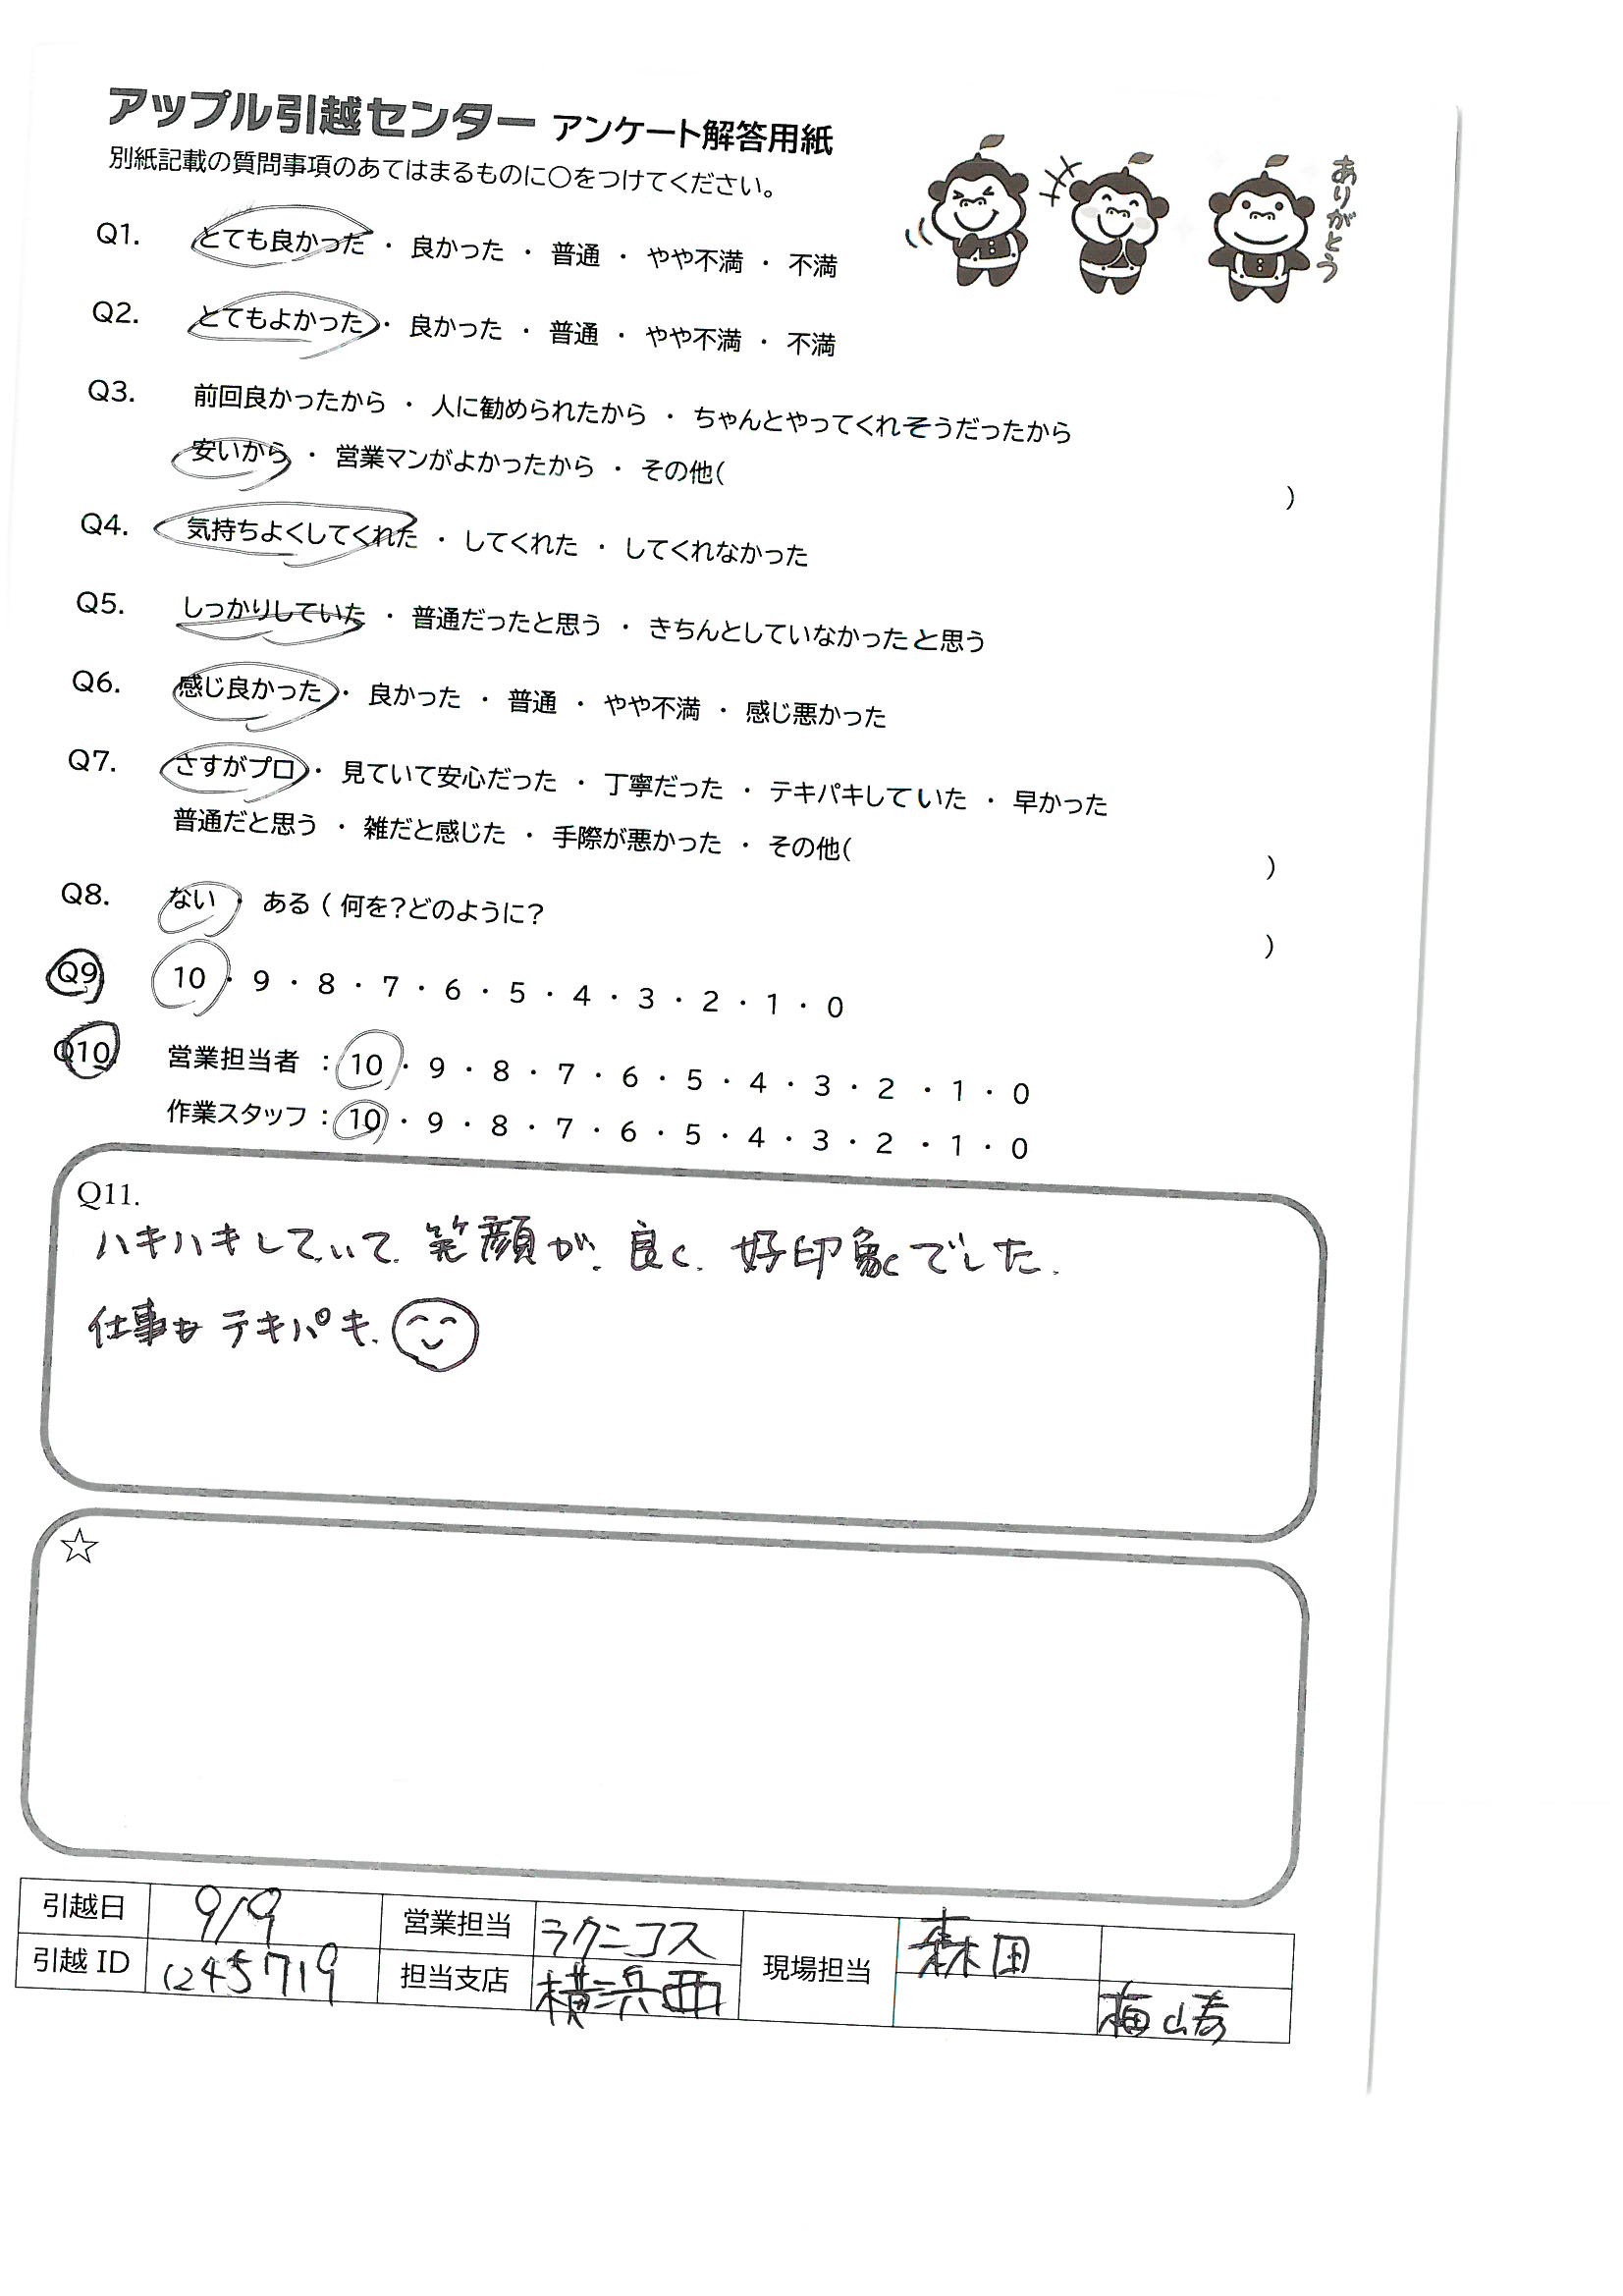 アップル引越センター アンケート解答用紙
別紙記載の質問事項のあてはまるものに○をつけてください。
ありがとう
Q1. とても良かった ・ 良かった ・ 普通 ・ やや不満 ・ 不満
Q2. とてもよかった ・ 良かった ・ 普通 ・ やや不満 ・ 不満
Q3. 前回良かったから ・ 人に勧められたから ・ ちゃんとやってくれそうだったから
安いから ・ 営業マンがよかったから ・ その他( )
Q4. 気持ちよくしてくれた ・ してくれた ・ してくれなかった
Q5. しっかりしていた ・ 普通だったと思う ・ きちんとしていなかったと思う
Q6. 感じ良かった ・ 良かった ・ 普通 ・ やや不満 ・ 感じ悪かった
Q7. さすがプロ ・ 見ていて安心だった ・ 丁寧だった ・ テキパキしていた ・ 早かった
普通だと思う ・ 雑だと感じた ・ 手際が悪かった ・ その他( )
Q8. ない ・ ある ( 何を?どのように? )
Q9 10 ・ 9 ・ 8 ・ 7 ・ 6 ・ 5 ・ 4 ・ 3 ・ 2 ・ 1 ・ 0
Q10. 営業担当者 : 10 ・ 9 ・ 8 ・ 7 ・ 6 ・ 5 ・ 4 ・ 3 ・ 2 ・ 1 ・ 0
作業スタッフ : 10 ・ 9 ・ 8 ・ 7 ・ 6 ・ 5 ・ 4 ・ 3 ・ 2 ・ 1 ・ 0
Q11.
ハキハキしていて、笑顔が、良く、好印象でした。
仕事もテキパキ、
☆
引越日 9/9 営業担当 ラクニコス 現場担当 森田
引越 ID 1245719 担当支店 横浜西 梅崎